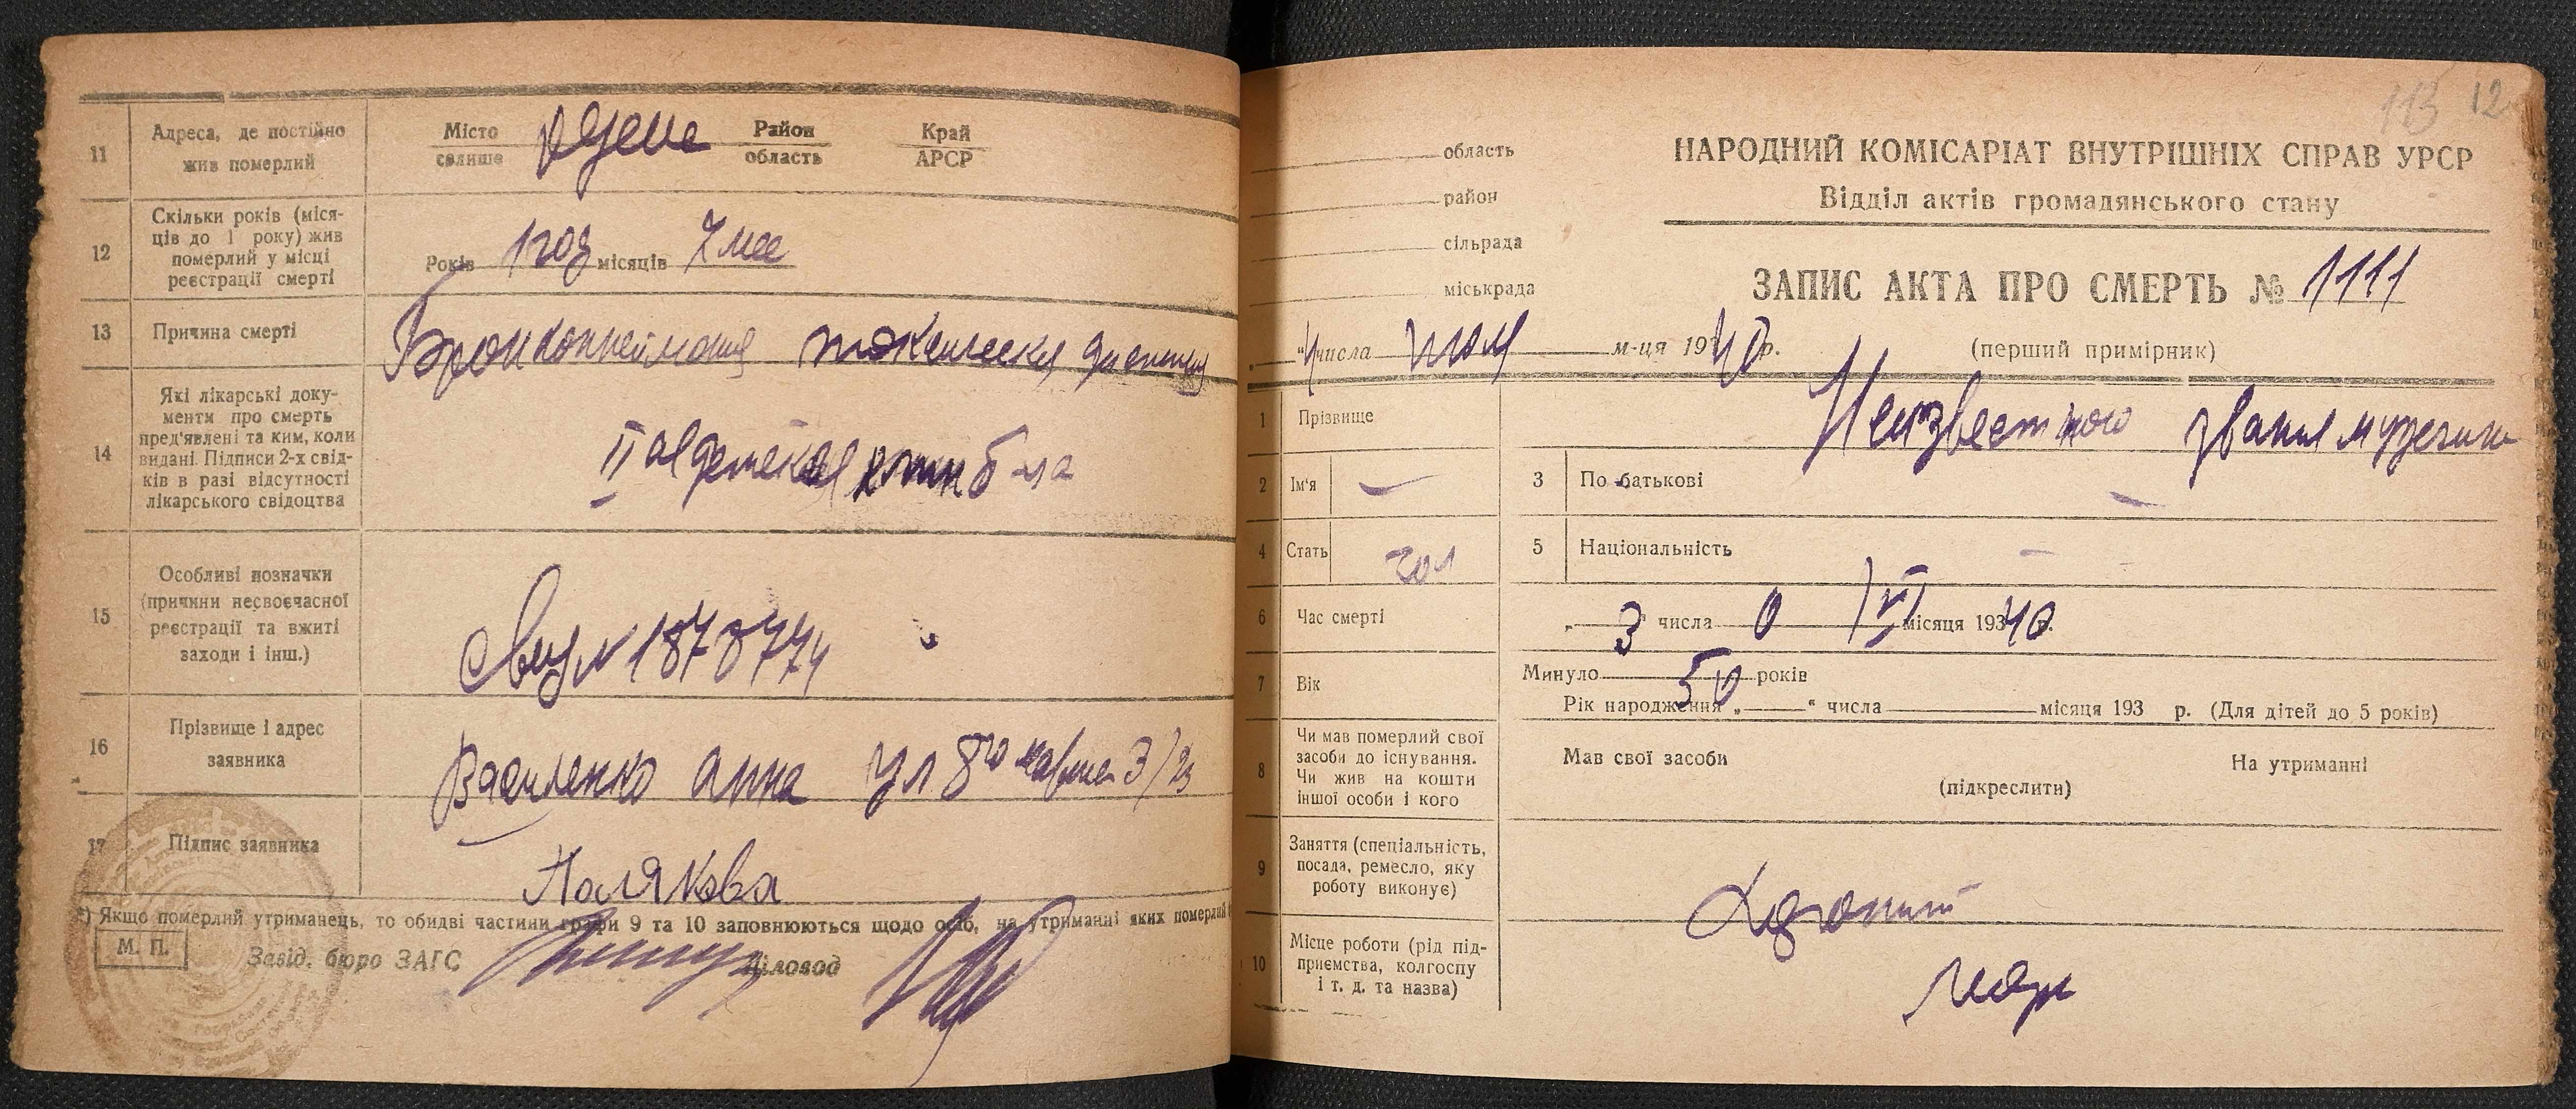 11
Адреса, де постійно
жив померлий
Місто
селище
Одеса
Район
область
Край
АРСР
12
Скільки років (міся-
ців до 1 року) жив
померлий у місці
реєстрації смерті
Років 1 год місяців 7 мес
13
Причина смерті
Бронхопневмония токсическая
14
Які лікарські доку-
менти про смерть
пред'явлені та ким, коли
видані. Підписи 2-х свід-
ків в разі відсутності
лікарського свідоцтва
II ая детская б-ца
15
Особливі позначки
(причини несвоєчасної
реєстрації та вжиті
заходи і інш.)
Свид N 1878774
16
Прізвище і адрес
заявника
Василенко Анна ул 8го марта 3/23
17
Підпис заявника
Полякова
*) Якщо померлий утриманець, то обидві частини графи 9 та 10 заповнюються щодо осіб, на утриманні яких померлий
М. П.
Завід. бюро ЗАГС
Діловод
113 12
область
район
сільрада
міськрада
НАРОДНИЙ КОМІСАРІАТ ВНУТРІШНІХ СПРАВ УРСР
Відділ актів громадянського стану
ЗАПИС АКТА ПРО СМЕРТЬ № 1111
"4" числа м-ця 1940 р.
(перший примірник)
1
Прізвище
Неизвестного звания мужчина
2
Ім'я
—
3
По батькові
—
4
Стать
чол
5
Національність
—
6
Час смерті
„3" числа VI місяця 1940 р.
7
Вік
Минуло 50 років
Рік народження „—" числа місяця 193 р. (Для дітей до 5 років)
8
Чи мав померлий свої
засоби до існування.
Чи жив на кошти
іншої особи і кого
Мав свої засоби
На утриманні
(підкреслити)
9
Заняття (спеціальність,
посада, ремесло, яку
роботу виконує)
10
Місце роботи (рід під-
приємства, колгоспу
і т. д. та назва)